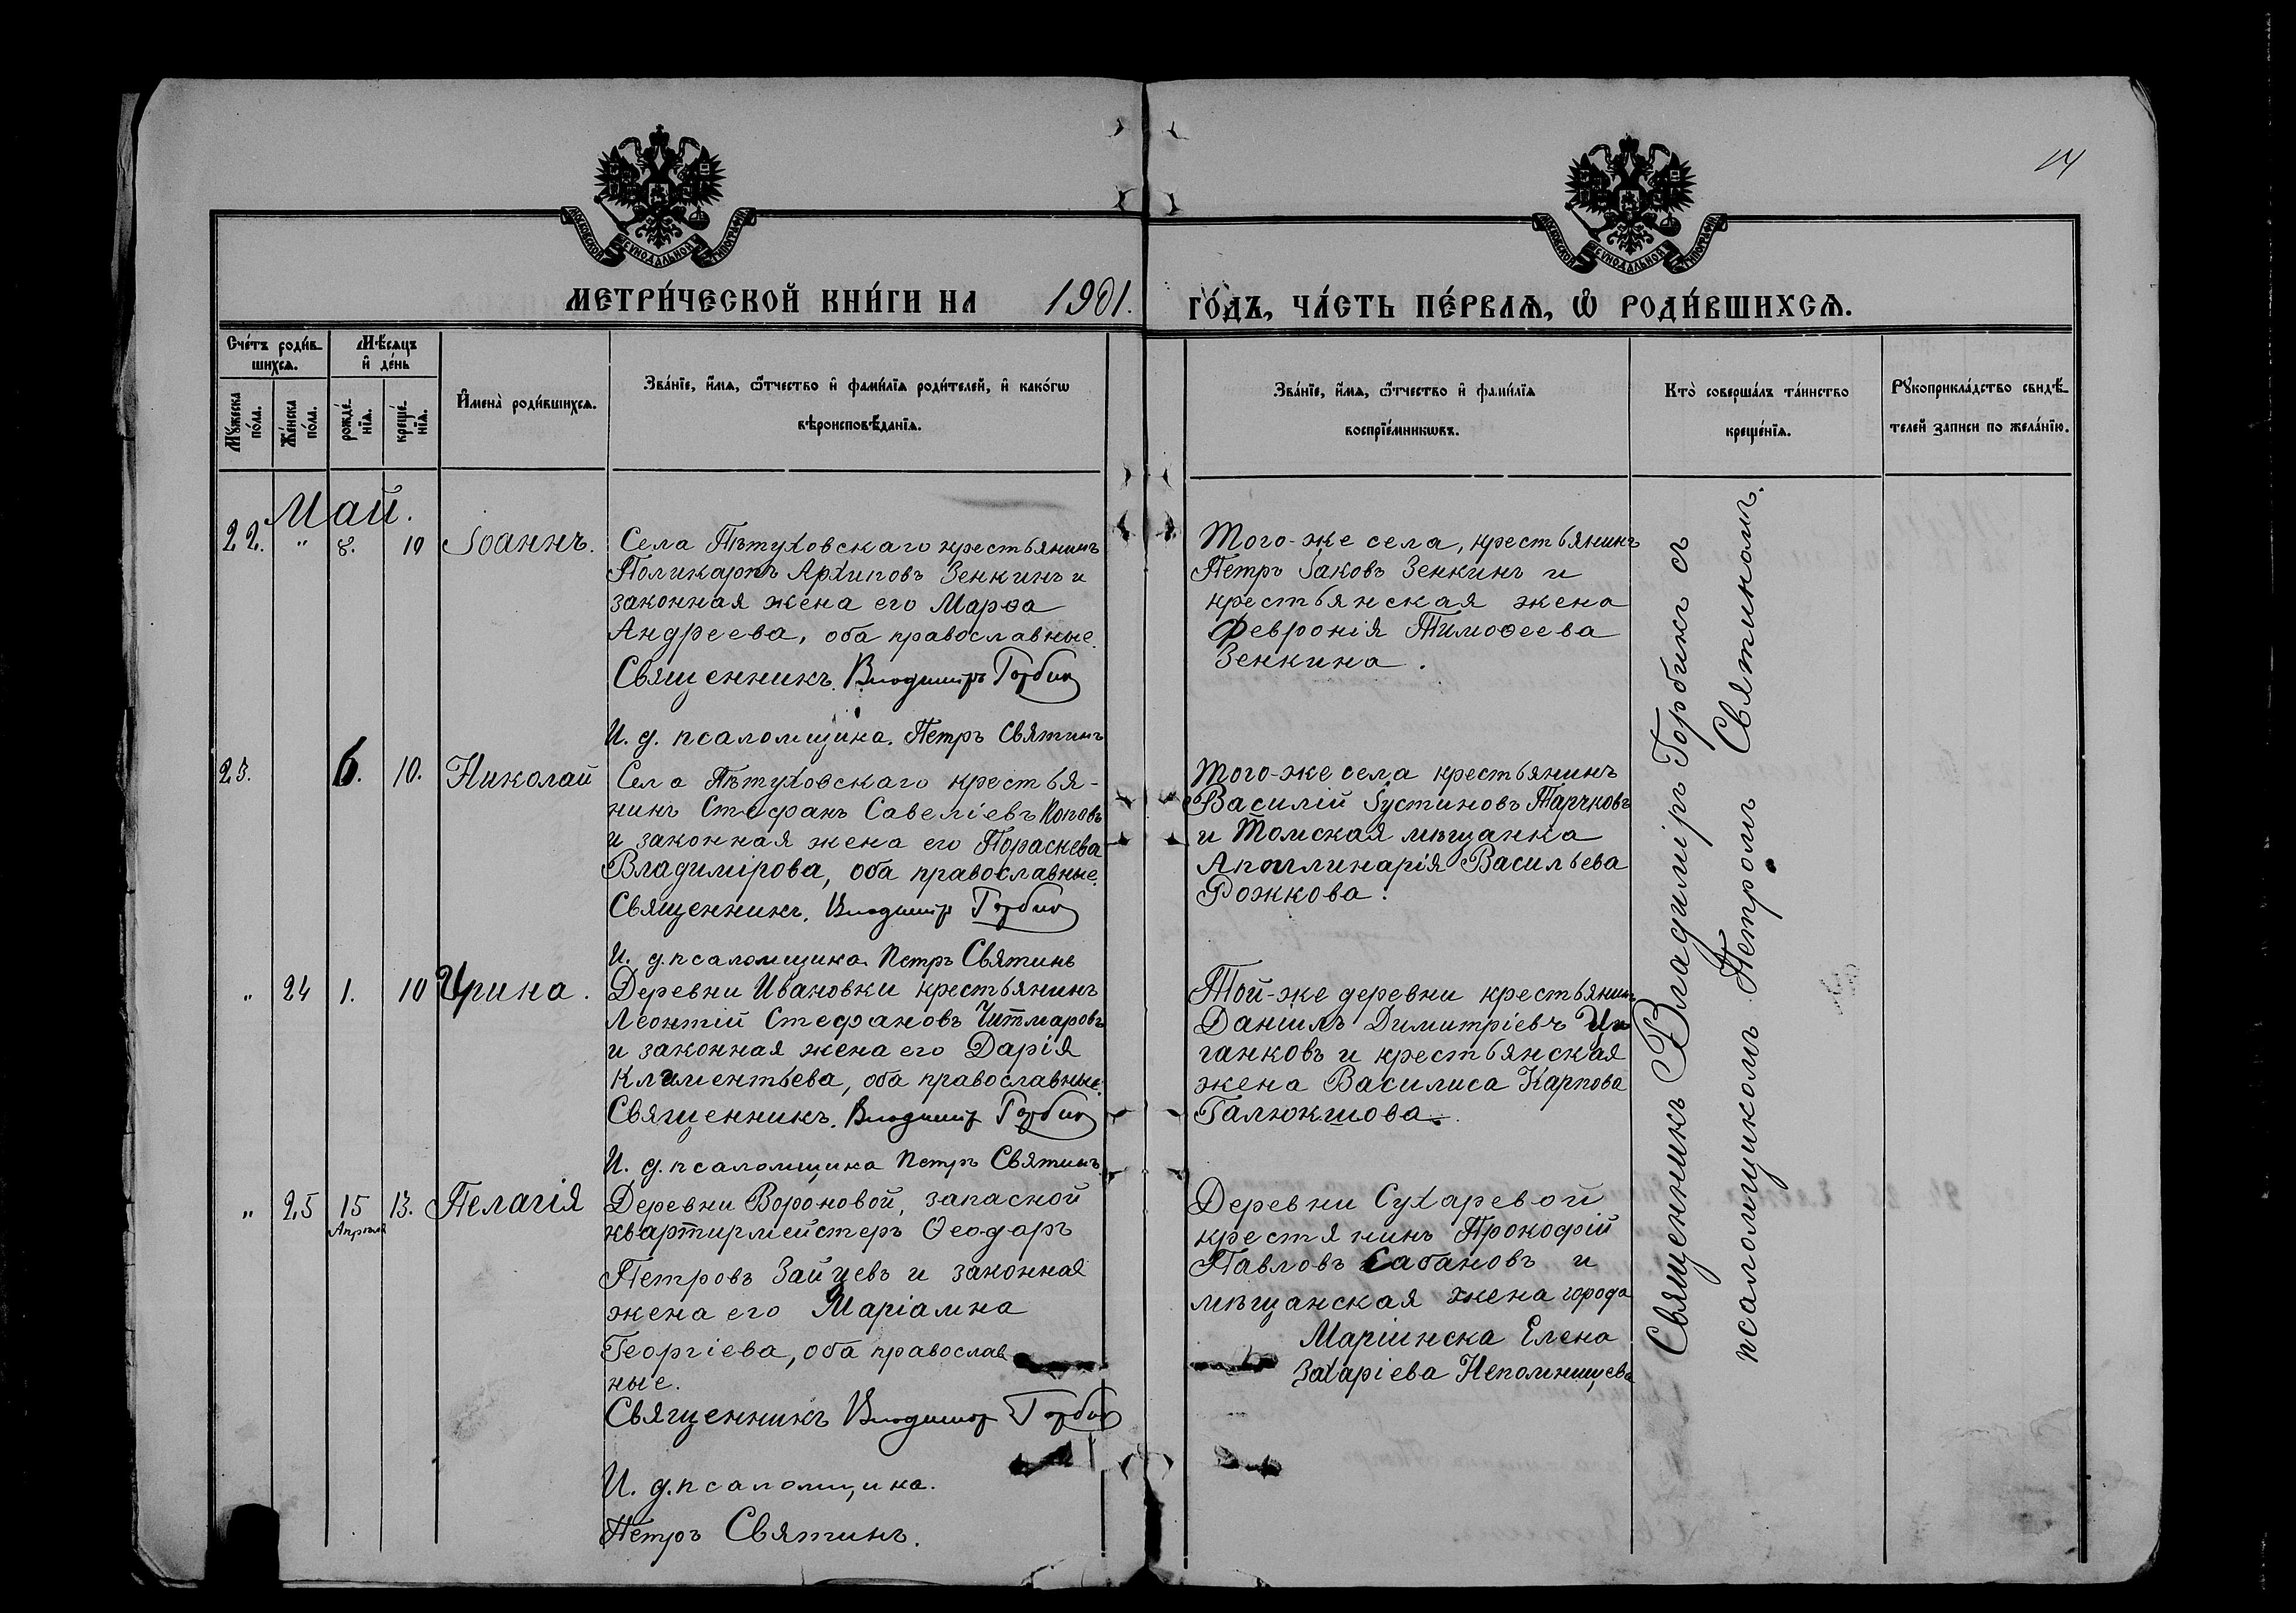 14
МОСКОВСКОЙ СѴНОДАЛЬНОЙ ТИПОГРАФІИ
МОСКОВСКОЙ СѴНОДАЛЬНОЙ ТИПОГРАФІИ
МЕТРИ́ЧЕСКОЙ КНИ́ГИ НА 1901. ГО́ДЪ, ЧА́СТЬ ПЕ́РВАѦ, Ѽ РОДИ́ВШИХСѦ.
Сче́тъ роди́в-
шихсѧ.
Мѣ́сѧцъ
и҆ де́нь
Мꙋ́жеска по́ла.
Же́нска по́ла.
рожде́-нїѧ.
креще́-нїѧ.
И҆мена̀ роди́вшихсѧ.
Зва́нїе, и҆́мѧ, ѻ҆́тчество и҆ фами́лїѧ роди́телей, и҆ како́гѡ
вѣроисповѣ́данїѧ.
Зва́нїе, и҆́мѧ, ѻ҆́тчество и҆ фами́лїѧ
воспрїе́мникѡвъ.
Кто̀ соверша́лъ та́инство
креще́нїѧ.
Рꙋкоприкла́дство свидѣ́-
телей записи по жела́нїю.
Май.
22. " 8. 10 Іоаннъ.
Села Пѣтуховскаго крестьянинъ
Поликарпъ Архиповъ Зенкинъ и
законная жена его Марѳа
Андреева, оба православные.
Священникъ. Владиміръ Горбин
И. д. псаломщика. Петръ Святинъ
Того-же села, крестьянинъ
Петръ Іаковъ Зенкинъ и
крестьянская жена
Февронія Тимоѳеева
Зенкина.
23. 6. 10. Николай
Села Пѣтуховскаго крестья-
нинъ Стефанъ Савеліевъ Поповъ
и законная жена его Пораскева
Владимірова, оба православные.
Священникъ. Владиміръ Горбин
И. д. псаломщика. Петръ Святинъ
Того-же села крестьянинъ
Василій Іустиновъ
и Томская мѣщанка
Аполлинарія Васильева
Рожкова.
" 24 1. 10 Ирина.
Деревни Ивановки крестьянинъ
Леонтій Стефановъ Читмаровъ
и законная жена его Дарія
Климентьева, оба православные.
Священникъ. Владиміръ Горбин
И. д. псаломщика Петръ Святинъ
Той-же деревни крестьянинъ
Даніилъ Димитріевъ Цы
ганковъ и крестьянская
жена Василиса Карпова
Галюкшова.
" 25 15 13. Пелагія
Апрѣля
Деревни Вороновой, запасной
квартирмейстеръ Ѳеодоръ
Петровъ Зайцевъ и законная
жена его Маріамна
Георгіева, оба православ
ные.
Священникъ Владиміръ Горбин
И. д. псаломщика.
Петръ Святинъ.
Деревни Сухаревой
крестянинъ Прокофій
Павловъ Сабановъ и
мѣщанская жена города
Маріинска Елена
Захаріева Непомнищева
Священникъ Владиміръ Горбинъ съ
псаломщикомъ Петромъ Святинымъ.